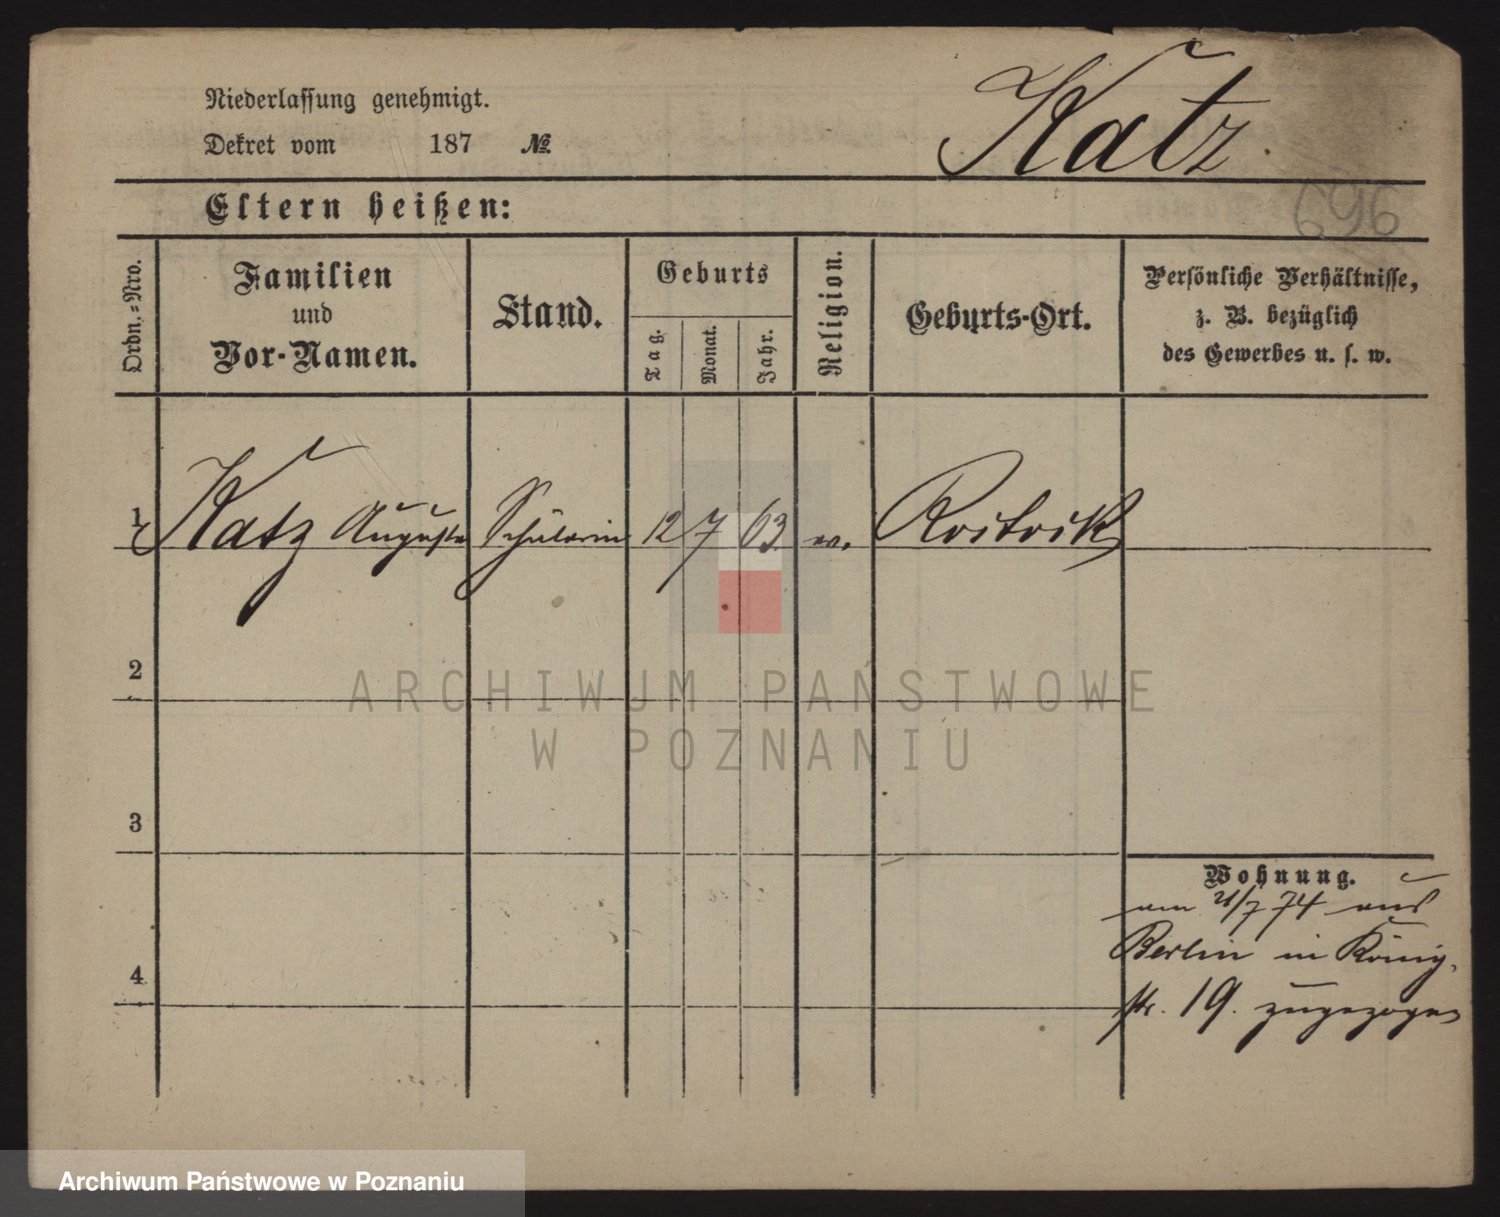 Niederlassung genehmigt.
Dekret vom 187 №
Katz.
696
Eltern heißen:
Ordn.-Nro.
Familien
und
Vor-Namen.
Stand.
Geburts
Tag.
Monat.
Jahr.
Religion.
Geburts-Ort.
Persönliche Verhältnisse,
z. B. bezüglich
des Gewerbes u. s. w.
1 Katz Auguste Schülerin 12 7 63. Rostock
2
3
4
Wohnung.
am 21/7 74 aus
Berlin in König-
str. 19. zugezogen
ARCHIWUM PAŃSTWOWE
W POZNANIU
Archiwum Państwowe w Poznaniu